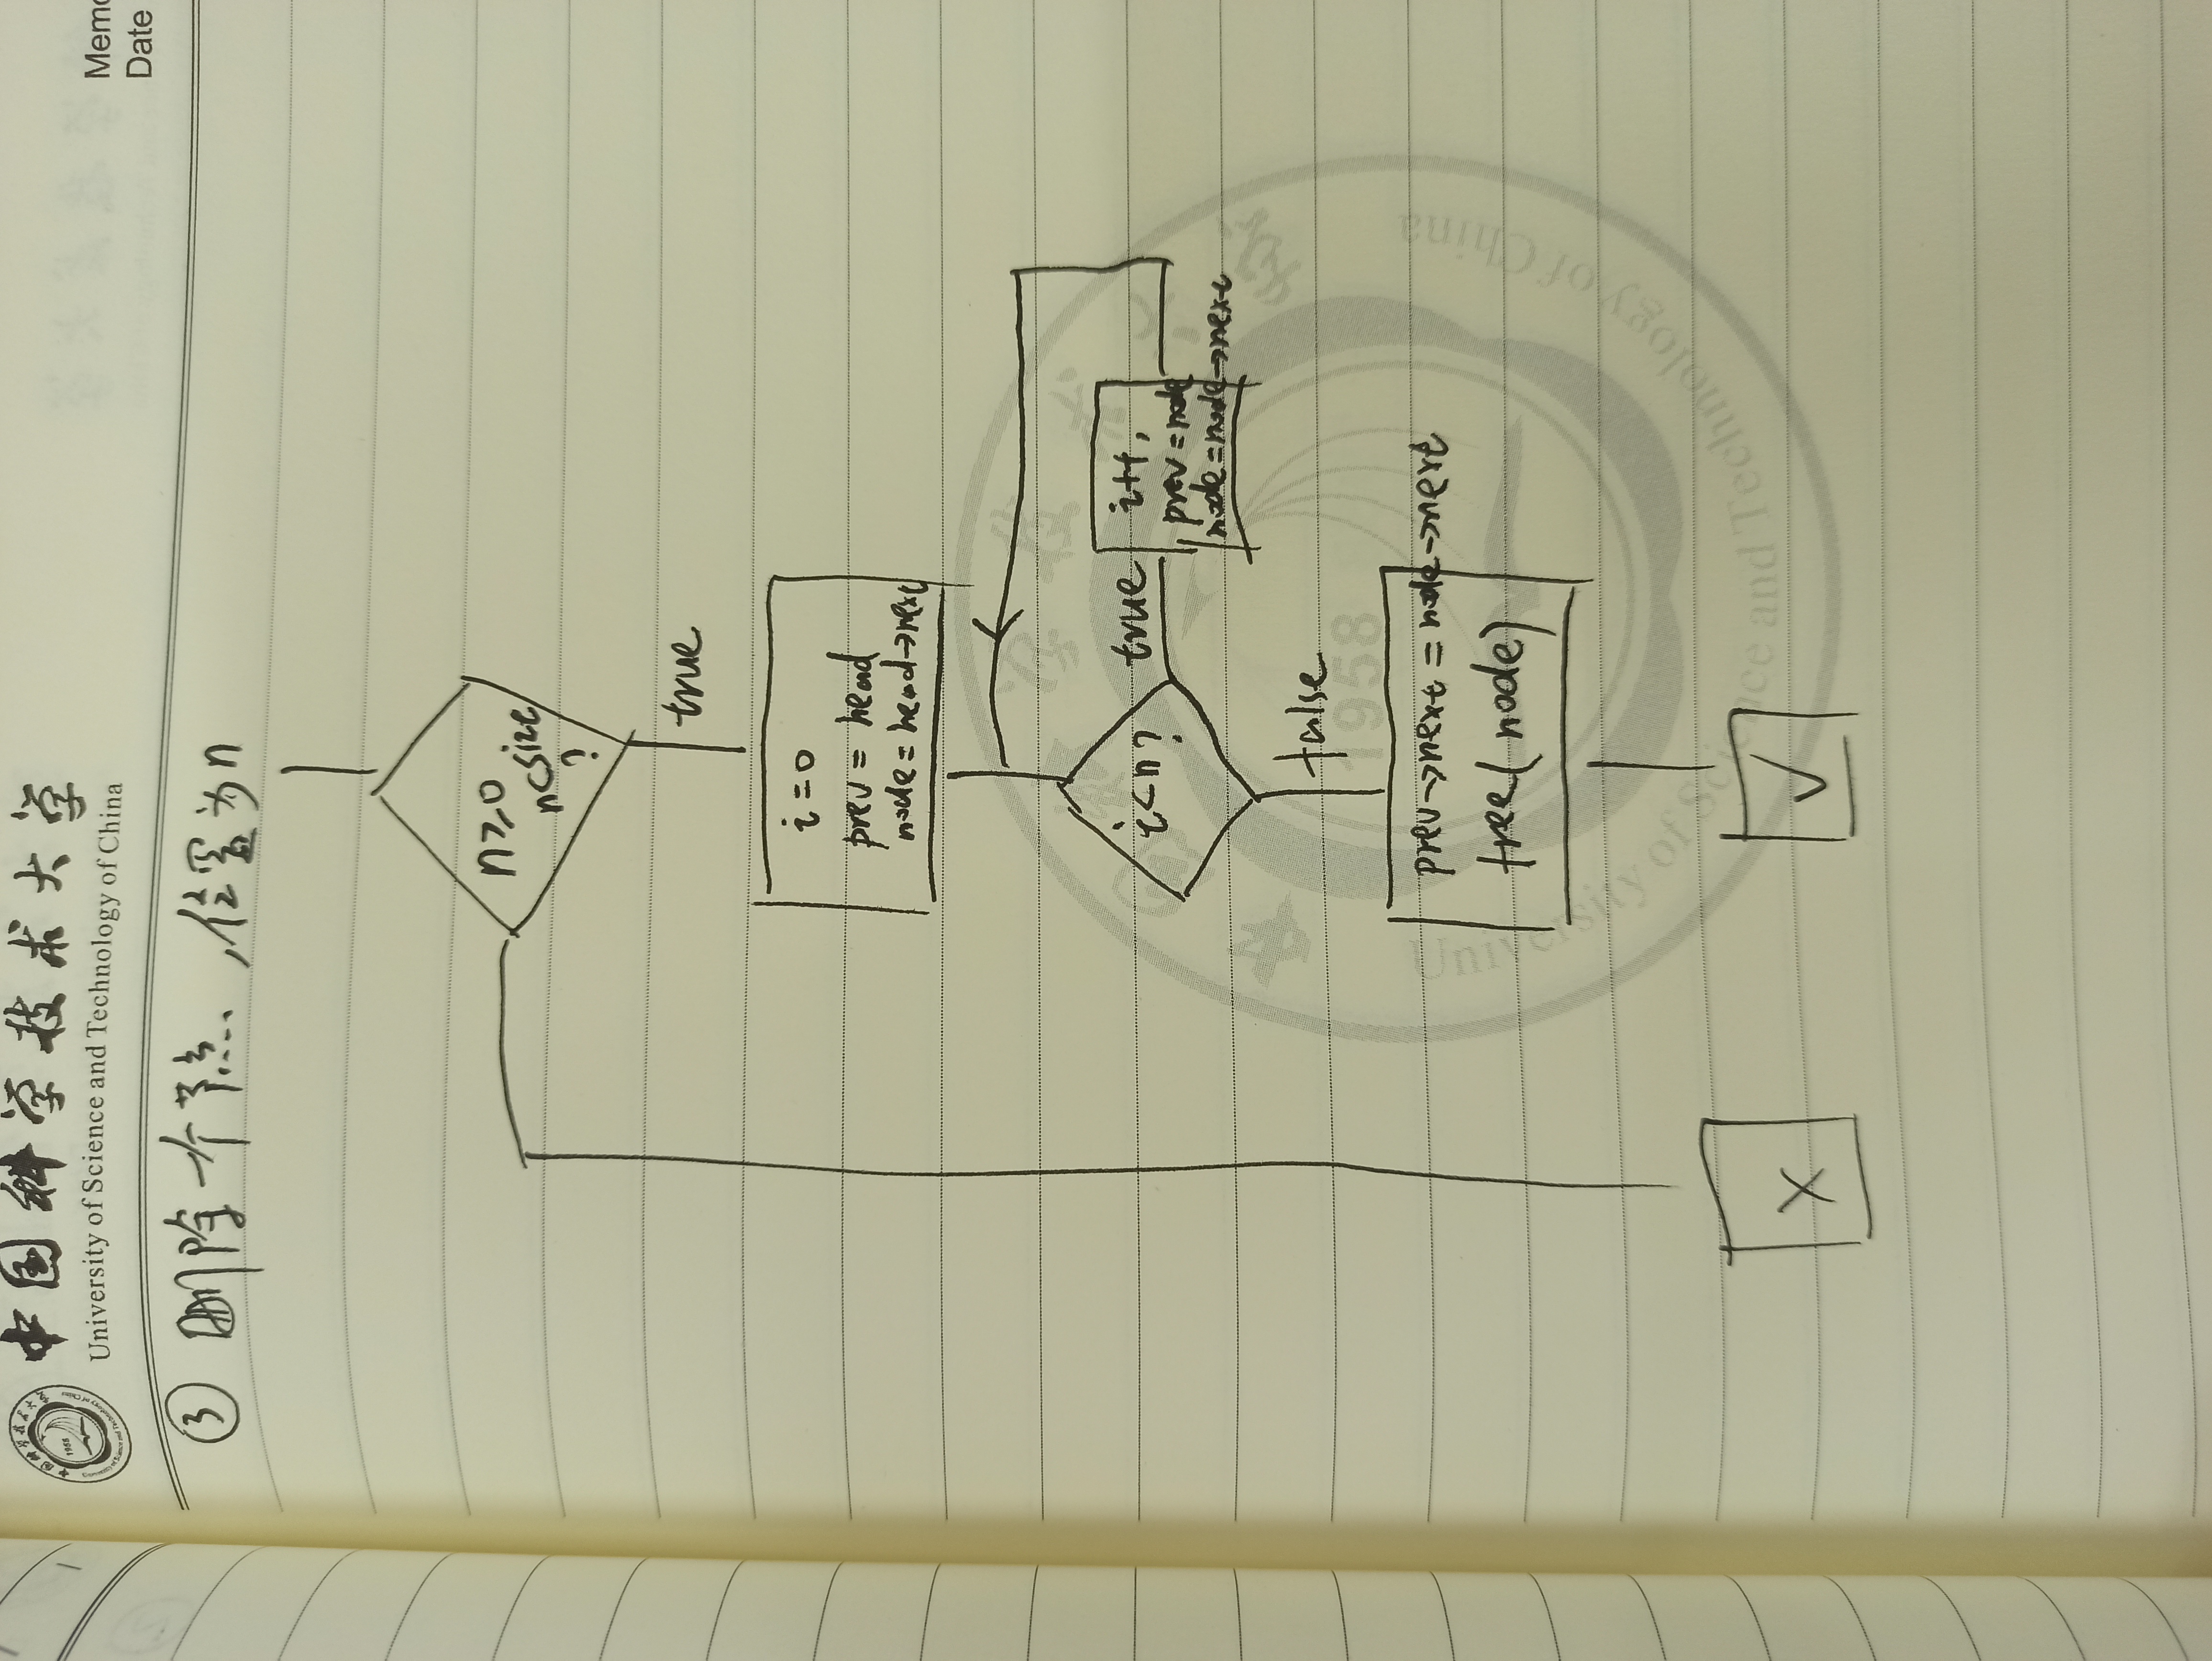 中国科学技术大学
University of Science and Technology of China
Memo
Date
③ 删除一个节点,位置为n
n≥0
n<size
?
true
i=0
prev = head
node = head->next
i<n?
true
i++,
prev = node
node = node->next
false
prev->next = node->next
free(node)
X
√
1958
University of Science and Technology of China